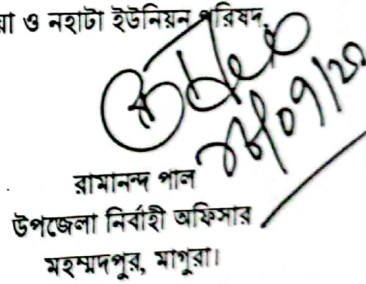 ও নহাটা ইউনিয়ন পরিষদ,
রামানন্দ পাল
উপজেলা নির্বাহী অফিসার
মহম্মদপুর, মাগুরা।